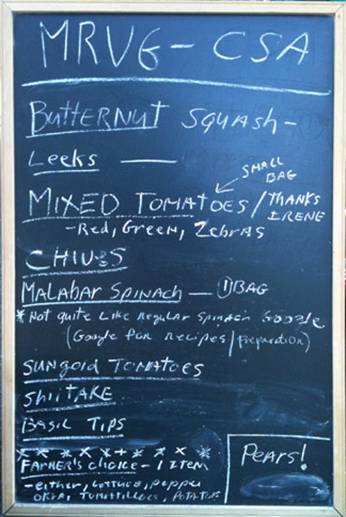 MRVG - CSA
Butternut Squash -
Leeks —
SMALL
BAG
MIXED TOMATOES / THANKS
IRENE
- Red, Green, Zebras
CHIVES
MALABAR SPINACH — ① BAG
* Not quite like regular spinach Google
(Google for recipes/preparation)
SUNGOLD TOMATOES
SHIITAKE
BASIL TIPS
* * * * * * * *
FARMER'S CHOICE - 1 ITEM
- either, lettuce, peppers
OKRA, TOMATILLOES, POTATOES
Pears!